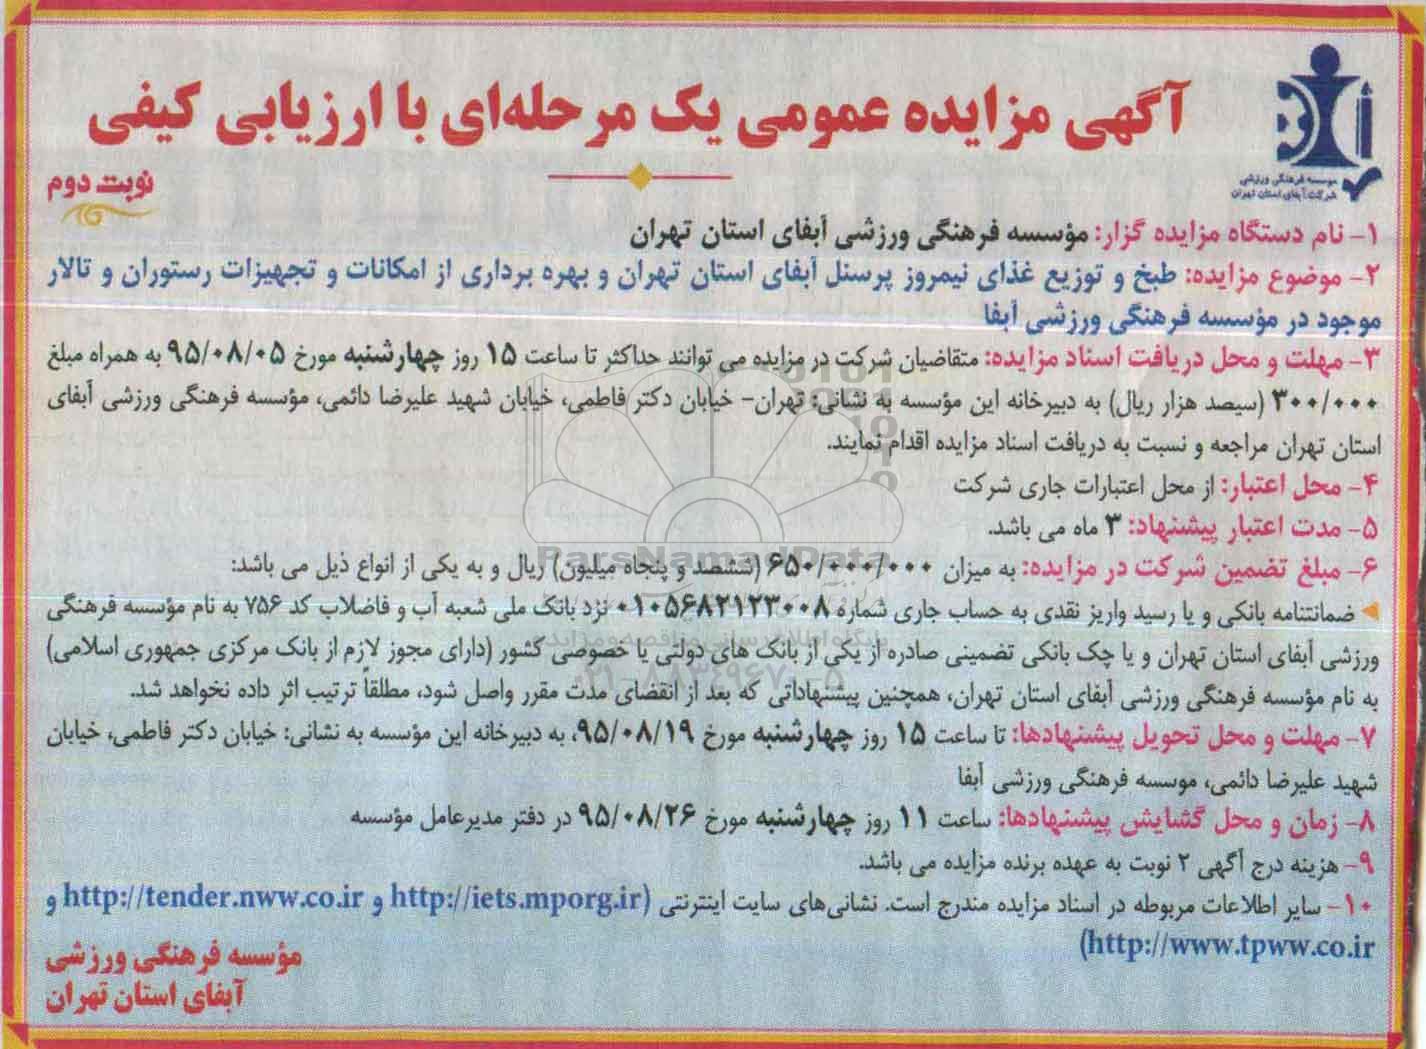 آگهی مزایده عمومی یک مرحله‌ای با ارزیابی کیفی
موسسه فرهنگی ورزشی
شرکت آبفای استان تهران
نوبت دوم
۱- نام دستگاه مزایده گزار: مؤسسه فرهنگی ورزشی آبفای استان تهران
۲- موضوع مزایده: طبخ و توزیع غذای نیمروز پرسنل آبفای استان تهران و بهره برداری از امکانات و تجهیزات رستوران و تالار
موجود در مؤسسه فرهنگی ورزشی آبفا
۳- مهلت و محل دریافت اسناد مزایده: متقاضیان شرکت در مزایده می توانند حداکثر تا ساعت ۱۵ روز چهارشنبه مورخ ۹۵/۰۸/۰۵ به همراه مبلغ
۳۰۰/۰۰۰ (سیصد هزار ریال) به دبیرخانه این مؤسسه به نشانی: تهران- خیابان دکتر فاطمی، خیابان شهید علیرضا دائمی، مؤسسه فرهنگی ورزشی آبفای
استان تهران مراجعه و نسبت به دریافت اسناد مزایده اقدام نمایند.
۴- محل اعتبار: از محل اعتبارات جاری شرکت
۵- مدت اعتبار پیشنهاد: ۳ ماه می باشد.
۶- مبلغ تضمین شرکت در مزایده: به میزان ۶۵۰/۰۰۰/۰۰۰ (ششصد و پنجاه میلیون) ریال و به یکی از انواع ذیل می باشد:
ضمانتنامه بانکی و یا رسید واریز نقدی به حساب جاری شماره ۰۱۰۵۶۸۲۱۲۳۰۰۸ نزد بانک ملی شعبه آب و فاضلاب کد ۷۵۶ به نام مؤسسه فرهنگی
ورزشی آبفای استان تهران و یا چک بانکی تضمینی صادره از یکی از بانک های دولتی یا خصوصی کشور (دارای مجوز لازم از بانک مرکزی جمهوری اسلامی)
به نام مؤسسه فرهنگی ورزشی آبفای استان تهران، همچنین پیشنهاداتی که بعد از انقضای مدت مقرر واصل شود، مطلقاً ترتیب اثر داده نخواهد شد.
۷- مهلت و محل تحویل پیشنهادها: تا ساعت ۱۵ روز چهارشنبه مورخ ۹۵/۰۸/۱۹، به دبیرخانه این مؤسسه به نشانی: خیابان دکتر فاطمی، خیابان
شهید علیرضا دائمی، موسسه فرهنگی ورزشی آبفا
۸- زمان و محل گشایش پیشنهادها: ساعت ۱۱ روز چهارشنبه مورخ ۹۵/۰۸/۲۶ در دفتر مدیرعامل مؤسسه
۹- هزینه درج آگهی ۲ نوبت به عهده برنده مزایده می باشد.
۱۰- سایر اطلاعات مربوطه در اسناد مزایده مندرج است. نشانی‌های سایت اینترنتی (http://iets.mporg.ir و http://tender.nww.co.ir و
http://www.tpww.co.ir)
مؤسسه فرهنگی ورزشی
آبفای استان تهران
ParsNamadData